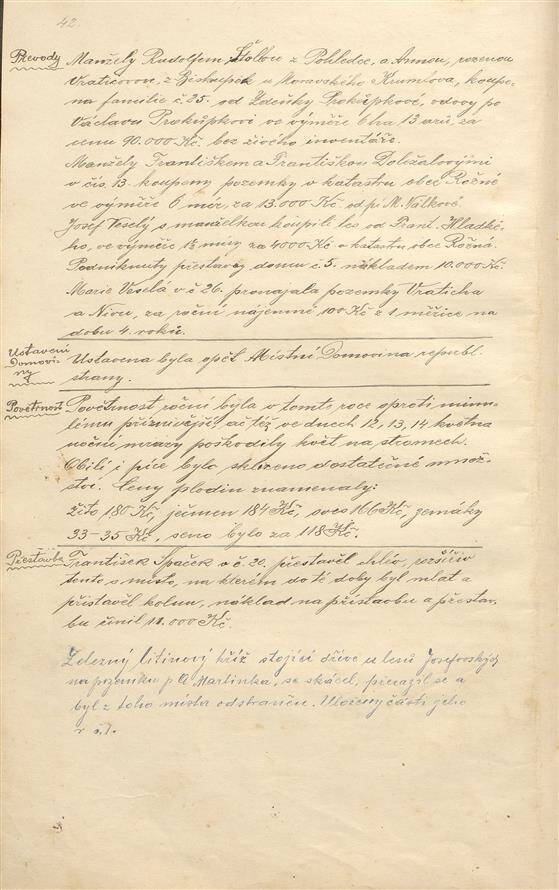 42.
Převody Manžely Rudolfem Štolbou z Pohledce, a Annou, rozenou
Vraticovou, z Biskupek u Moravského Krumlova, koupe-
na familie č. 25. od Zdeňky Prokůpkové, vdovy po
Václavu Prokůpkovi ve výměře 6 ha 13 arů, za
cenu 90.000 Kč. bez živého inventáře.
Manžely Františkem a Františkou Doležalovými
v čís. 13. koupeny pozemky v katastru obce Rožné
ve výměře 6 měr, za 13.000 Kč od p. M. Válkové.
Josef Veselý s manželkou koupili les od Frant. Hladké-
ho, ve výměře 1½ míry za 4000 Kč v katastru obce Rožná.
Podniknuty přestavby domu č. 5. nákladem 10.000 Kč.
Marie Veselá v č 26. pronajala pozemky Vraticha
a Nivu, za roční nájemné 100 Kč z 1 měřice na
dobu 4. roků.
Ustavení Domovi-ny Ustavena byla opět Místní Domovina republ.
strany.
Povětrnost Povětrnost roční býla v tomto roce oproti minu-
lému příznivější ač též ve dnech 12, 13, 14 května
noční mrazy poškodily květ na stromech.
Obilí i píce bylo sklizeno dostatečné množ-
ství. Ceny plodin znamenaly:
žito 180 Kč, ječmen 184 Kč, oves 166 Kč, zemáky
33-35 Kč, seno bylo za 118 Kč.
Přestavba František Špaček v č. 20. přestavěl chlév, rozšířiv
tento o místo, na kterém do té doby byl mlat a
přistavěl kolnu, náklad na přístavbu a přestav-
bu činil 11.000 Kč.
Železný litinový kříž stojící dříve u lesů Josefovských
na pozemku p. A. Martinka, se skácel, přerazil se a
byl z toho místa odstraněn. Uloženy části jeho
v č. 1.